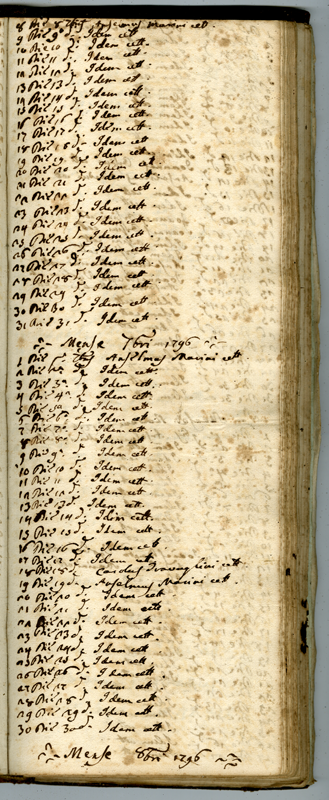 9 Die 9a d. Idem cett.
10 Die 10 d. Idem cett.
11 Die 11 d. Idem cett.
12 Die 12 d. Idem cett.
13 Die 13 d. Idem cett.
14 Die 14 d. Idem cett.
15 Die 15 d. Idem cett.
16 Die 16 d. Idem cett.
17 Die 17 d. Idem cett.
18 Die 18 d. Idem cett.
19 Die 19 d. Idem cett.
20 Die 20 d. Idem cett.
21 Die 21 d. Idem cett.
22 Die 22 d. Idem cett.
23 Die 23 d. Idem cett.
24 Die 24 d. Idem cett.
25 Die 25 d. Idem cett.
26 Die 26 d. Idem cett.
27 Die 27 d. Idem cett.
28 Die 28 d. Idem cett.
29 Die 29 d. Idem cett.
30 Die 30 d. Idem cett.
31 Die 31 d. Idem cett.
Mense 7bri 1796
1 Die Anselmus Marini cett.
2 Die d. Idem cett.
3 Die 3a d. Idem cett.
4 Die 4a d. Idem cett.
5 Die 5a d. Idem cett.
6 Die 6a d. Idem cett.
7 Die 7a d. Idem cett.
8 Die 8a d. Idem cett.
9 Die 9a d. Idem cett.
10 Die 10 d. Idem cett.
11 Die 11 d. Idem cett.
12 Die 12 d. Idem cett.
13 Die 13 d. Idem cett.
14 Die 14 d. Idem cett.
15 Die 15 d. Idem cett.
16 Die 16 d. Idem cett.
17 Die 17 d. Idem cett.
18 Die 18 d. cett.
19 Die 19 d. Anselmus Marini cett.
20 Die 20 d. Idem cett.
21 Die 21 d. Idem cett.
22 Die 22 d. Idem cett.
23 Die 23 d. Idem cett.
24 Die 24 d. Idem cett.
25 Die 25 d. Idem cett.
26 Die 26 d. Idem cett.
27 Die 27 d. Idem cett.
28 Die 28 d. Idem cett.
29 Die 29 d. Idem cett.
30 Die 30 d. Idem cett.
Mense 8bri 1796